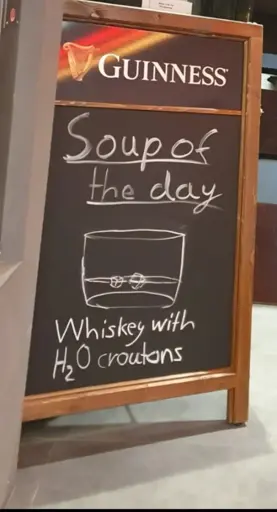 GUINNESS
Soup of
the day
Whiskey with
H₂O croutons